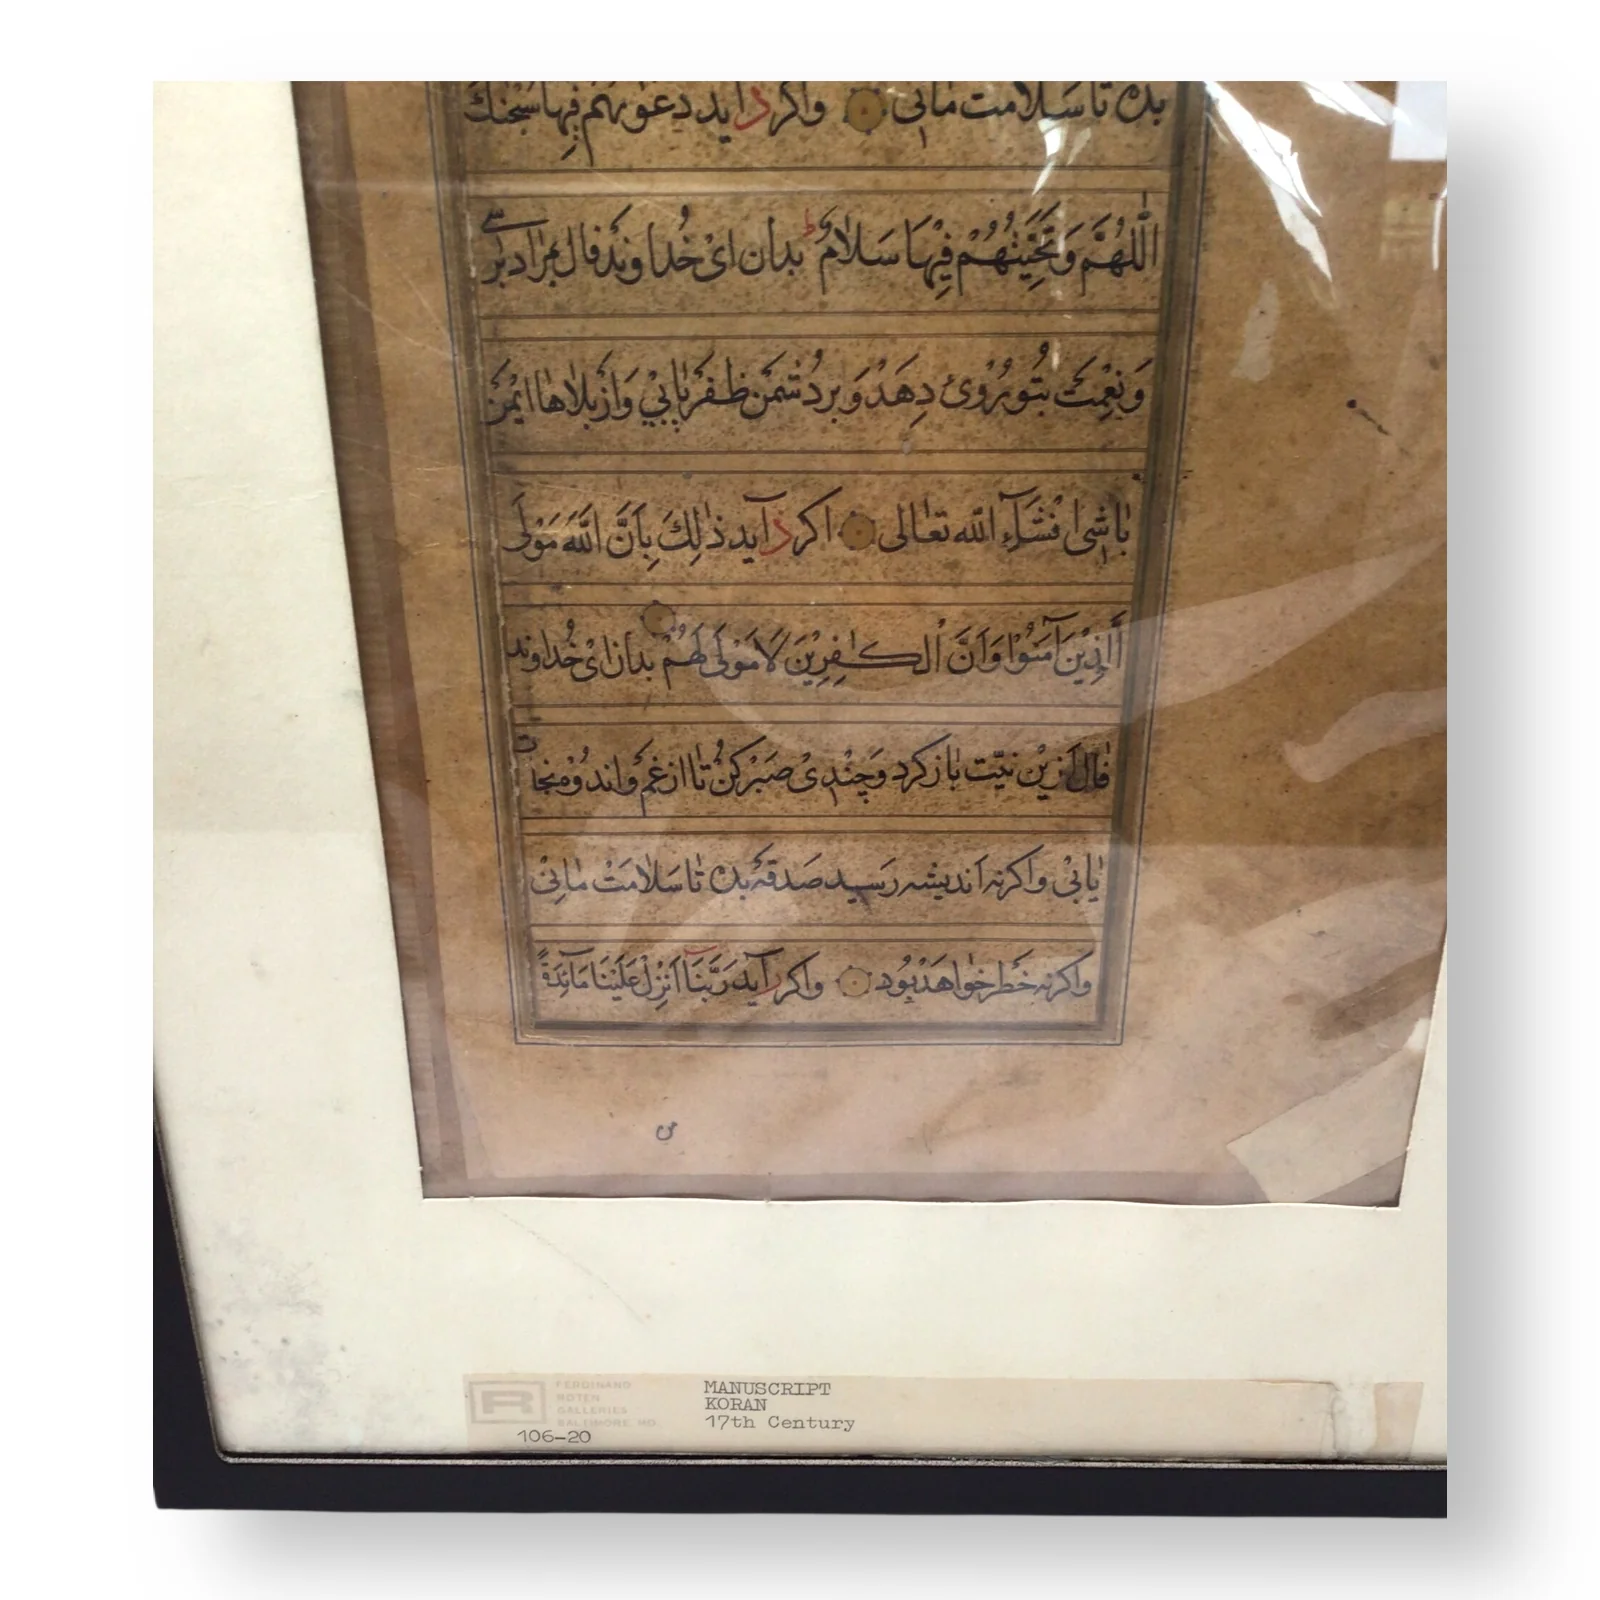 بده تا سلامت مانی واکر ذ اید دعوٰیهم فیها سبحنك
اللّٰهُمَّ وَتَحِیَّتُهُمْ فِیْهَا سَلَامٌ بدان ای خُداوند فال مراد بر
وَنِعْمَت بتو رُوْی دِهَدْ وَ بر دُشمن ظفَر یابیْ وَاز بلاها ایمن
باشی انشَآءَ اللّه تعالی اکر ذ آید ذٰلِكَ بِاَنَّ اللّهَ مَوْلَی
الَّذِیْنَ آمَنُوْا وَاَنَّ الْكٰفِرِیْنَ لَا مَوْلَی لَهُمْ بدان ای خُداوند
فال اَزین نیّت باز کرد وَچندی صَبر کُن تا از غم واندوْه نجات
یابی واکرنه اندیشه رَسید صَدقه بده تا سَلامَتْ مانی
واکرنه خَطر خواهَدْ بُود واکر ر آید رَبَّنَا اَنْزِلْ عَلَیْنَا مَآئِدَةً
R
FERDINAND
ROTEN
GALLERIES
BALTIMORE, MD.
106-20
MANUSCRIPT
KORAN
17th Century